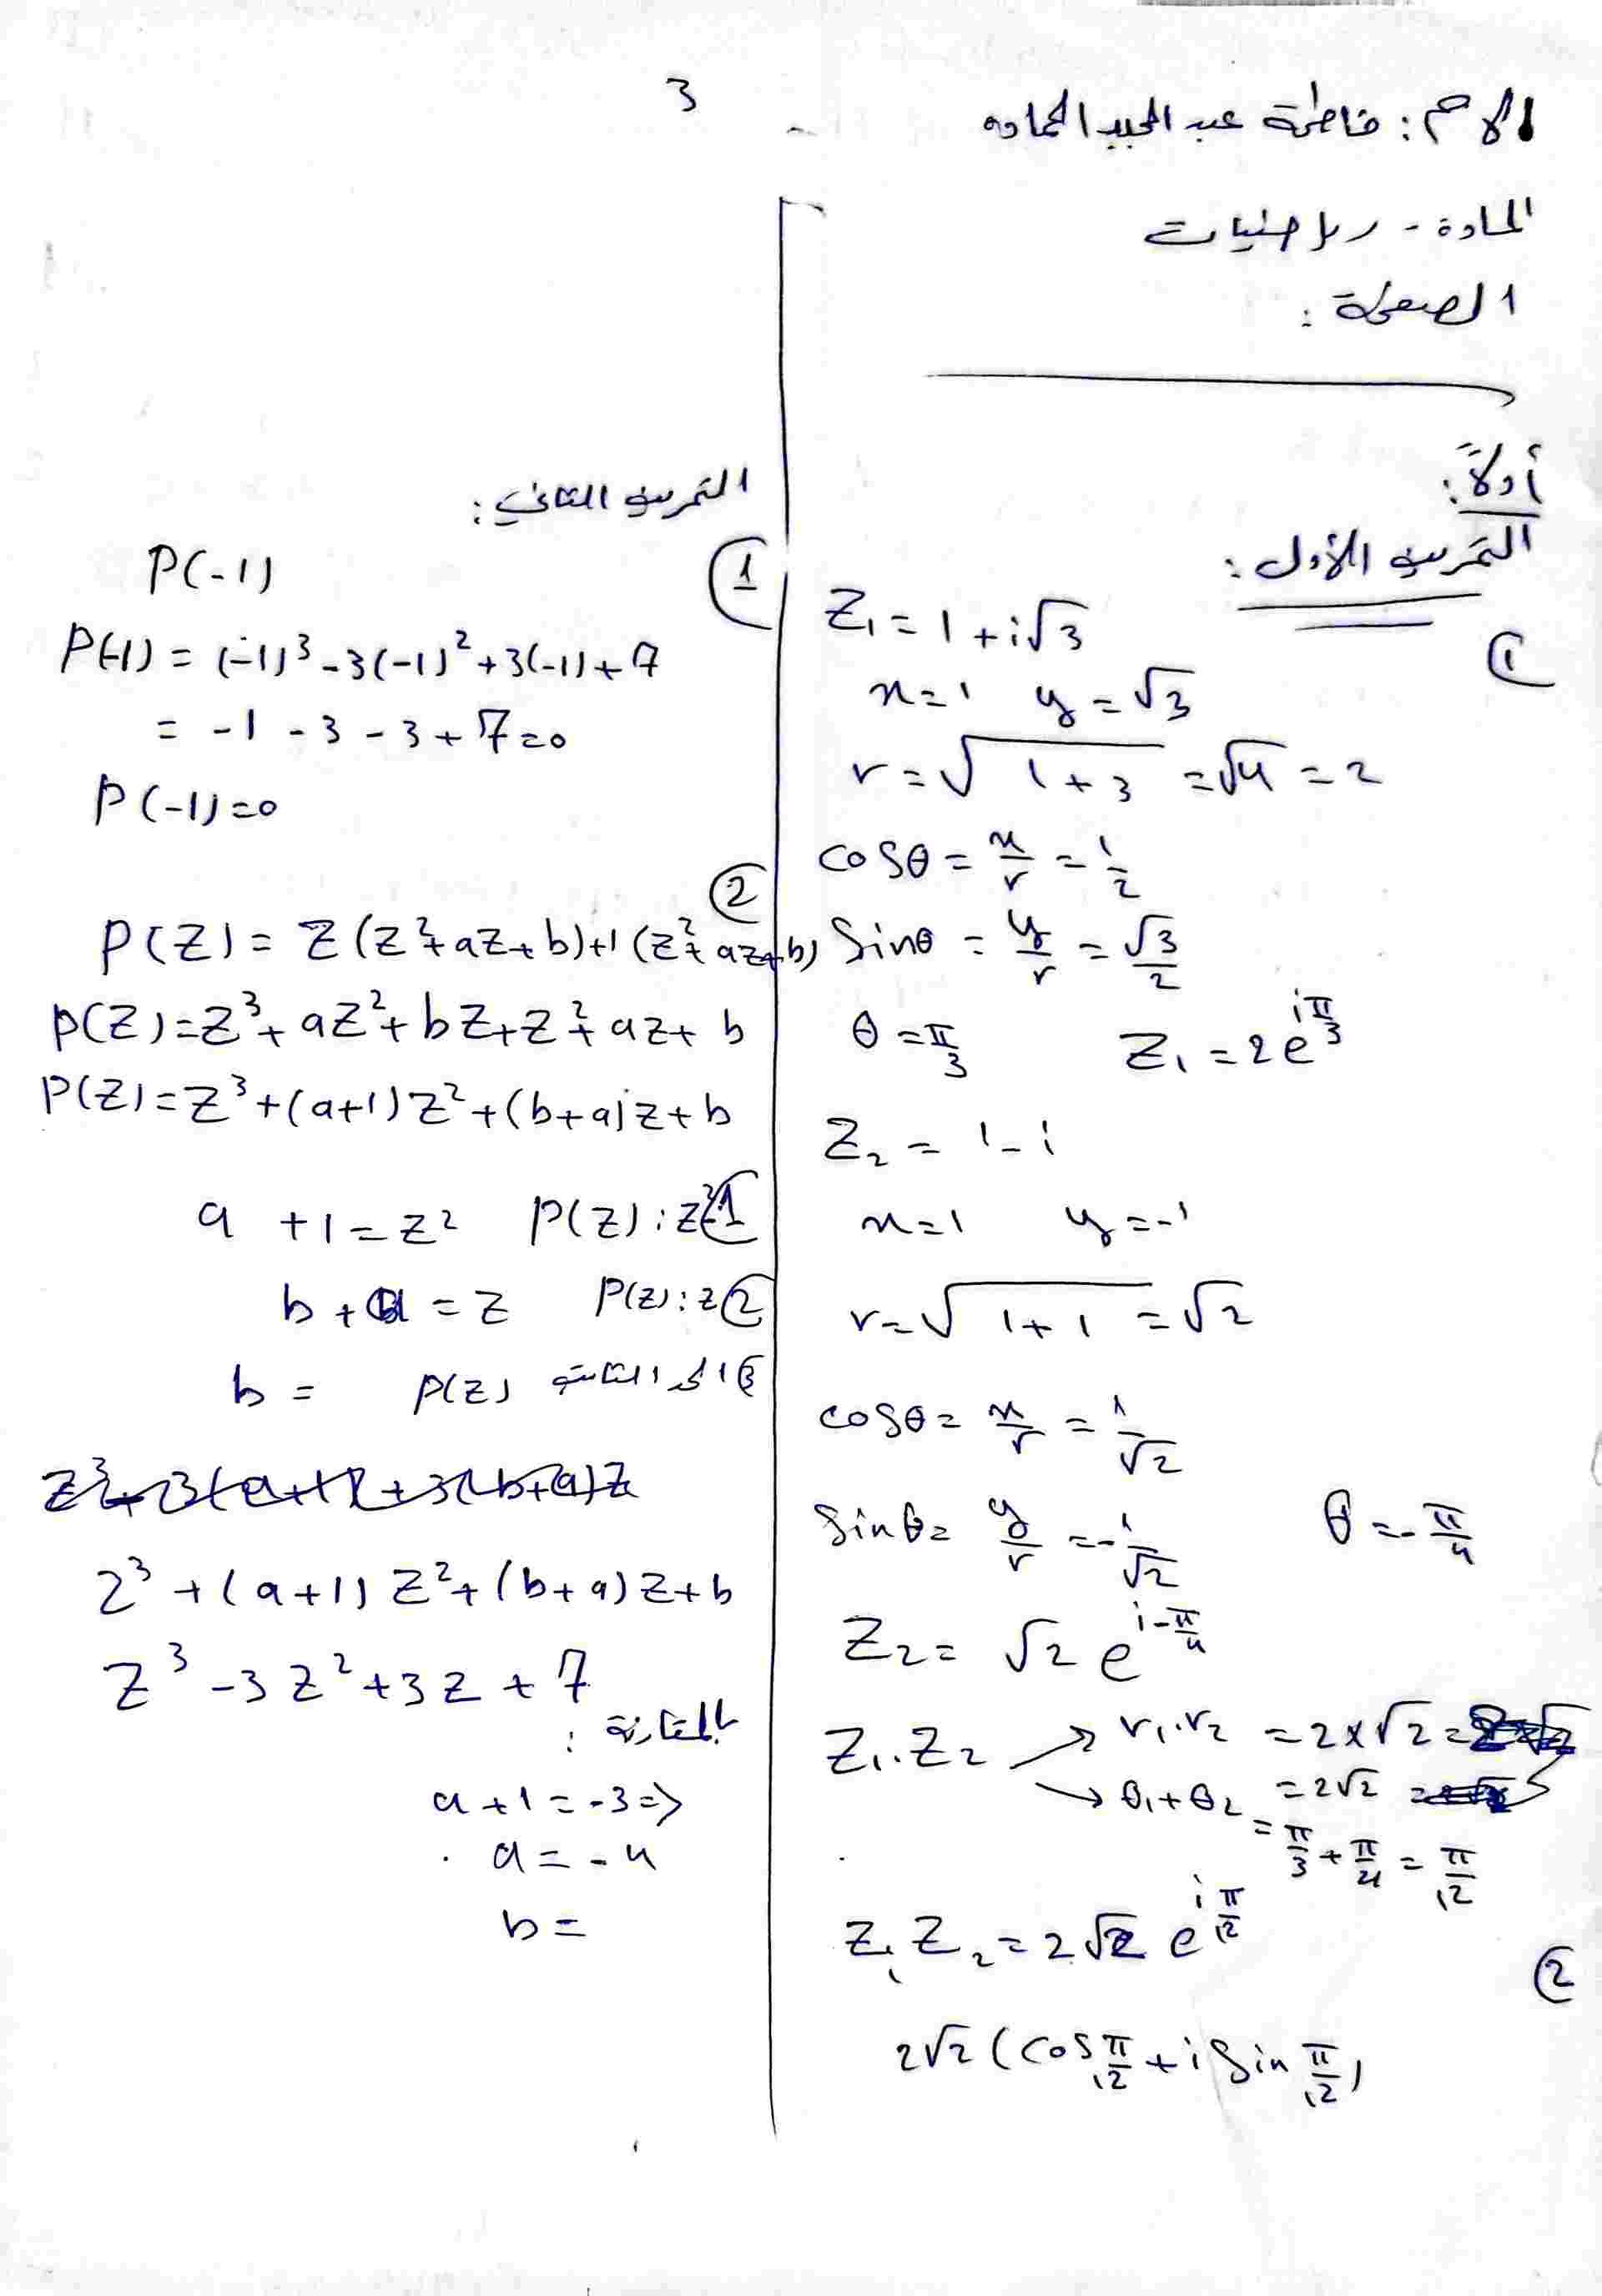 3
الاسم: فاطمة عبد المجيد الحماده
المادة - رياضيات
الصفحة:
أولاً:
التمرين الأول:
①
Z₁ = 1 + i√3
x = 1 y = √3
r = √(1 + 3) = √4 = 2
cosθ = x/r = 1/2
Sinθ = y/r = √3/2
θ = π/3 Z₁ = 2e^(iπ/3)
Z₂ = 1 - i
x = 1 y = -1
r = √(1 + 1) = √2
cosθ = x/r = 1/√2
Sinθ = y/r = -1/√2 θ = -π/4
Z₂ = √2 e^(i-π/4)
Z₁.Z₂ → r₁.r₂ = 2×√2 =
→ θ₁+θ₂ = 2√2
= π/3 + π/4 = π/12
Z₁Z₂ = 2√2 e^(iπ/12)
②
2√2 (cos π/12 + i Sin π/12)
التمرين الثاني:
①
P(-1)
P(-1) = (-1)³ - 3(-1)² + 3(-1) + 7
= -1 - 3 - 3 + 7 = 0
P(-1) = 0
②
P(Z) = Z(Z² + aZ + b) + 1(Z² + aZ + b)
P(Z) = Z³ + aZ² + bZ + Z² + aZ + b
P(Z) = Z³ + (a+1)Z² + (b+a)Z + b
a + 1 = Z² P(Z) : Z² ①
b + a = Z P(Z) : Z ②
b = P(Z) الحد الثابت ③
Z³ + 3(a+1) + 3(b+a)Z
Z³ + (a+1)Z² + (b+a)Z + b
Z³ - 3Z² + 3Z + 7
بالمقارنة:
a + 1 = -3 ⇒
a = -4
b =